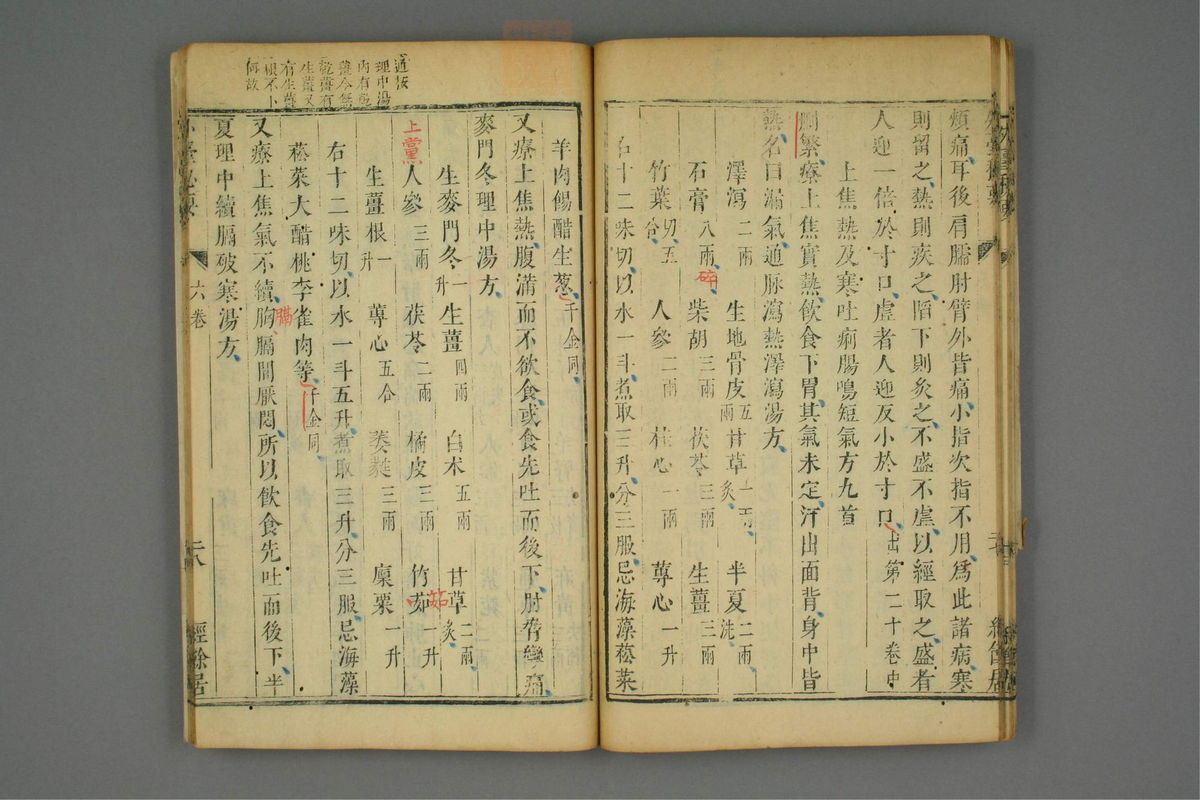 頰痛耳後肩臑肘臂外皆痛小指次指不用爲此諸病寒
則留之熱則疾之陷下則灸之不盛不虛以經取之盛者
人迎一倍於寸口虛者人迎反小於寸口出第二十卷中
上焦熱及寒吐痢腸鳴短氣方九首
刪繁療上焦實熱飲食下胃其氣未定汗出面背身中皆
熱名曰漏氣通脉瀉熱澤瀉湯方
澤瀉二兩 生地骨皮五兩 甘草一兩炙 半夏二兩洗
石膏八兩碎 柴胡三兩 茯苓三兩 生薑三兩
竹葉切五合 人參二兩 桂心一兩 蓴心一升
右十二味切以水一斗煮取三升分三服忌海藻菘菜
羊肉餳醋生葱千金同
又療上焦熱腹滿而不欲食或食先吐而後下肘臂攣痛
麥門冬理中湯方
生麥門冬一升 生薑四兩 白术五兩 甘草二兩炙
上黨人參三兩 茯苓二兩 橘皮三兩 竹茹一升 茹
生薑根一升 蓴心五合 萎蕤三兩 廩粟一升
右十二味切以水一斗五升煮取三升分三服忌海藻
菘菜大醋桃李雀肉等千金同
又療上焦氣不續胸膈間厭悶所以飲食先吐而後下半
膈
夏理中續膈破寒湯方
六卷
二八
經餘居
道按
理中湯
內有乾
薑今無
乾薑有
生薑又
有生薑
根不卜
何故